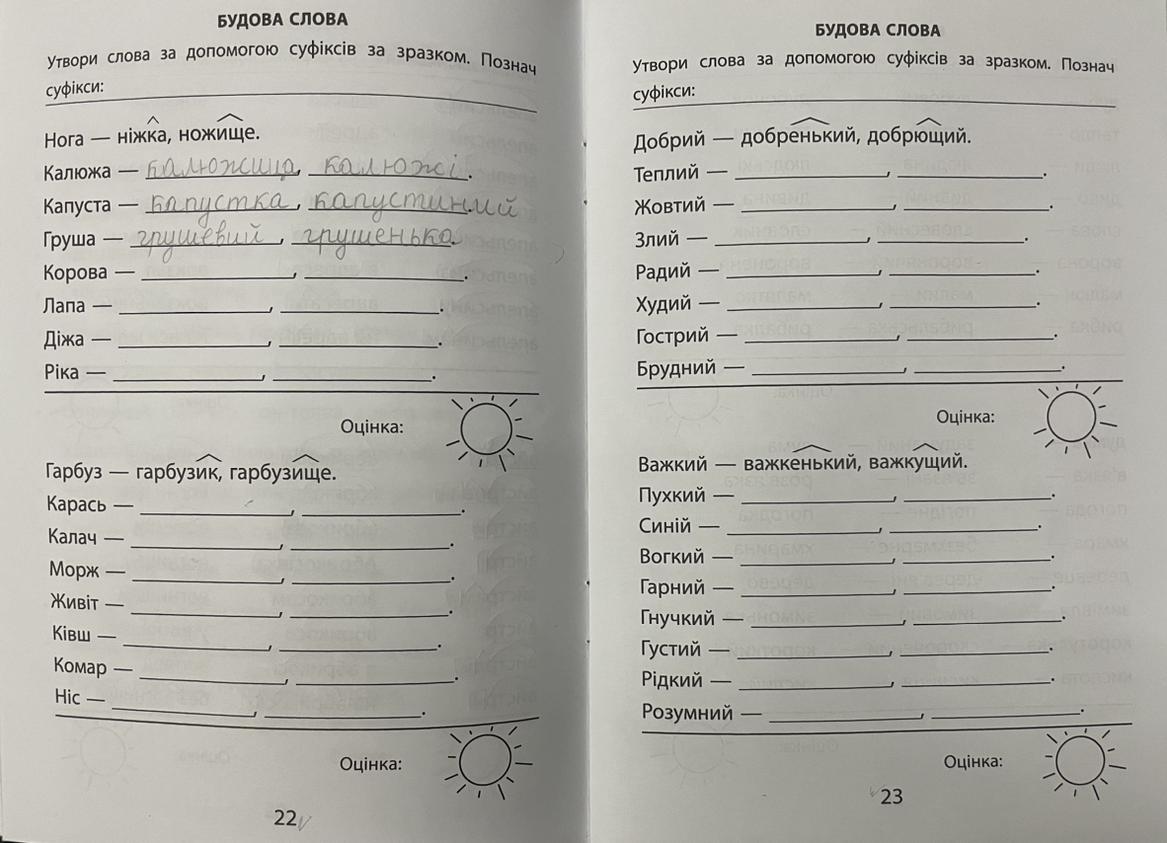 БУДОВА СЛОВА
Утвори слова за допомогою суфіксів за зразком. Познач
суфікси:
Нога — ніжка, ножище.
Калюжа — калюжица, калюжі.
Капуста — капустка, капустиний.
Груша — грушевий, грушенька.
Корова — , .
Лапа — , .
Діжа — , .
Ріка — , .
Оцінка:
Гарбуз — гарбузик, гарбузище.
Карась — , .
Калач — , .
Морж — , .
Живіт — , .
Ківш — , .
Комар — , .
Ніс — , .
Оцінка:
22
БУДОВА СЛОВА
Утвори слова за допомогою суфіксів за зразком. Познач
суфікси:
Добрий — добренький, добрющий.
Теплий — , .
Жовтий — , .
Злий — , .
Радий — , .
Худий — , .
Гострий — , .
Брудний — , .
Оцінка:
Важкий — важкенький, важкущий.
Пухкий — , .
Синій — , .
Вогкий — , .
Гарний — , .
Гнучкий — , .
Густий — , .
Рідкий — , .
Розумний — , .
Оцінка:
23